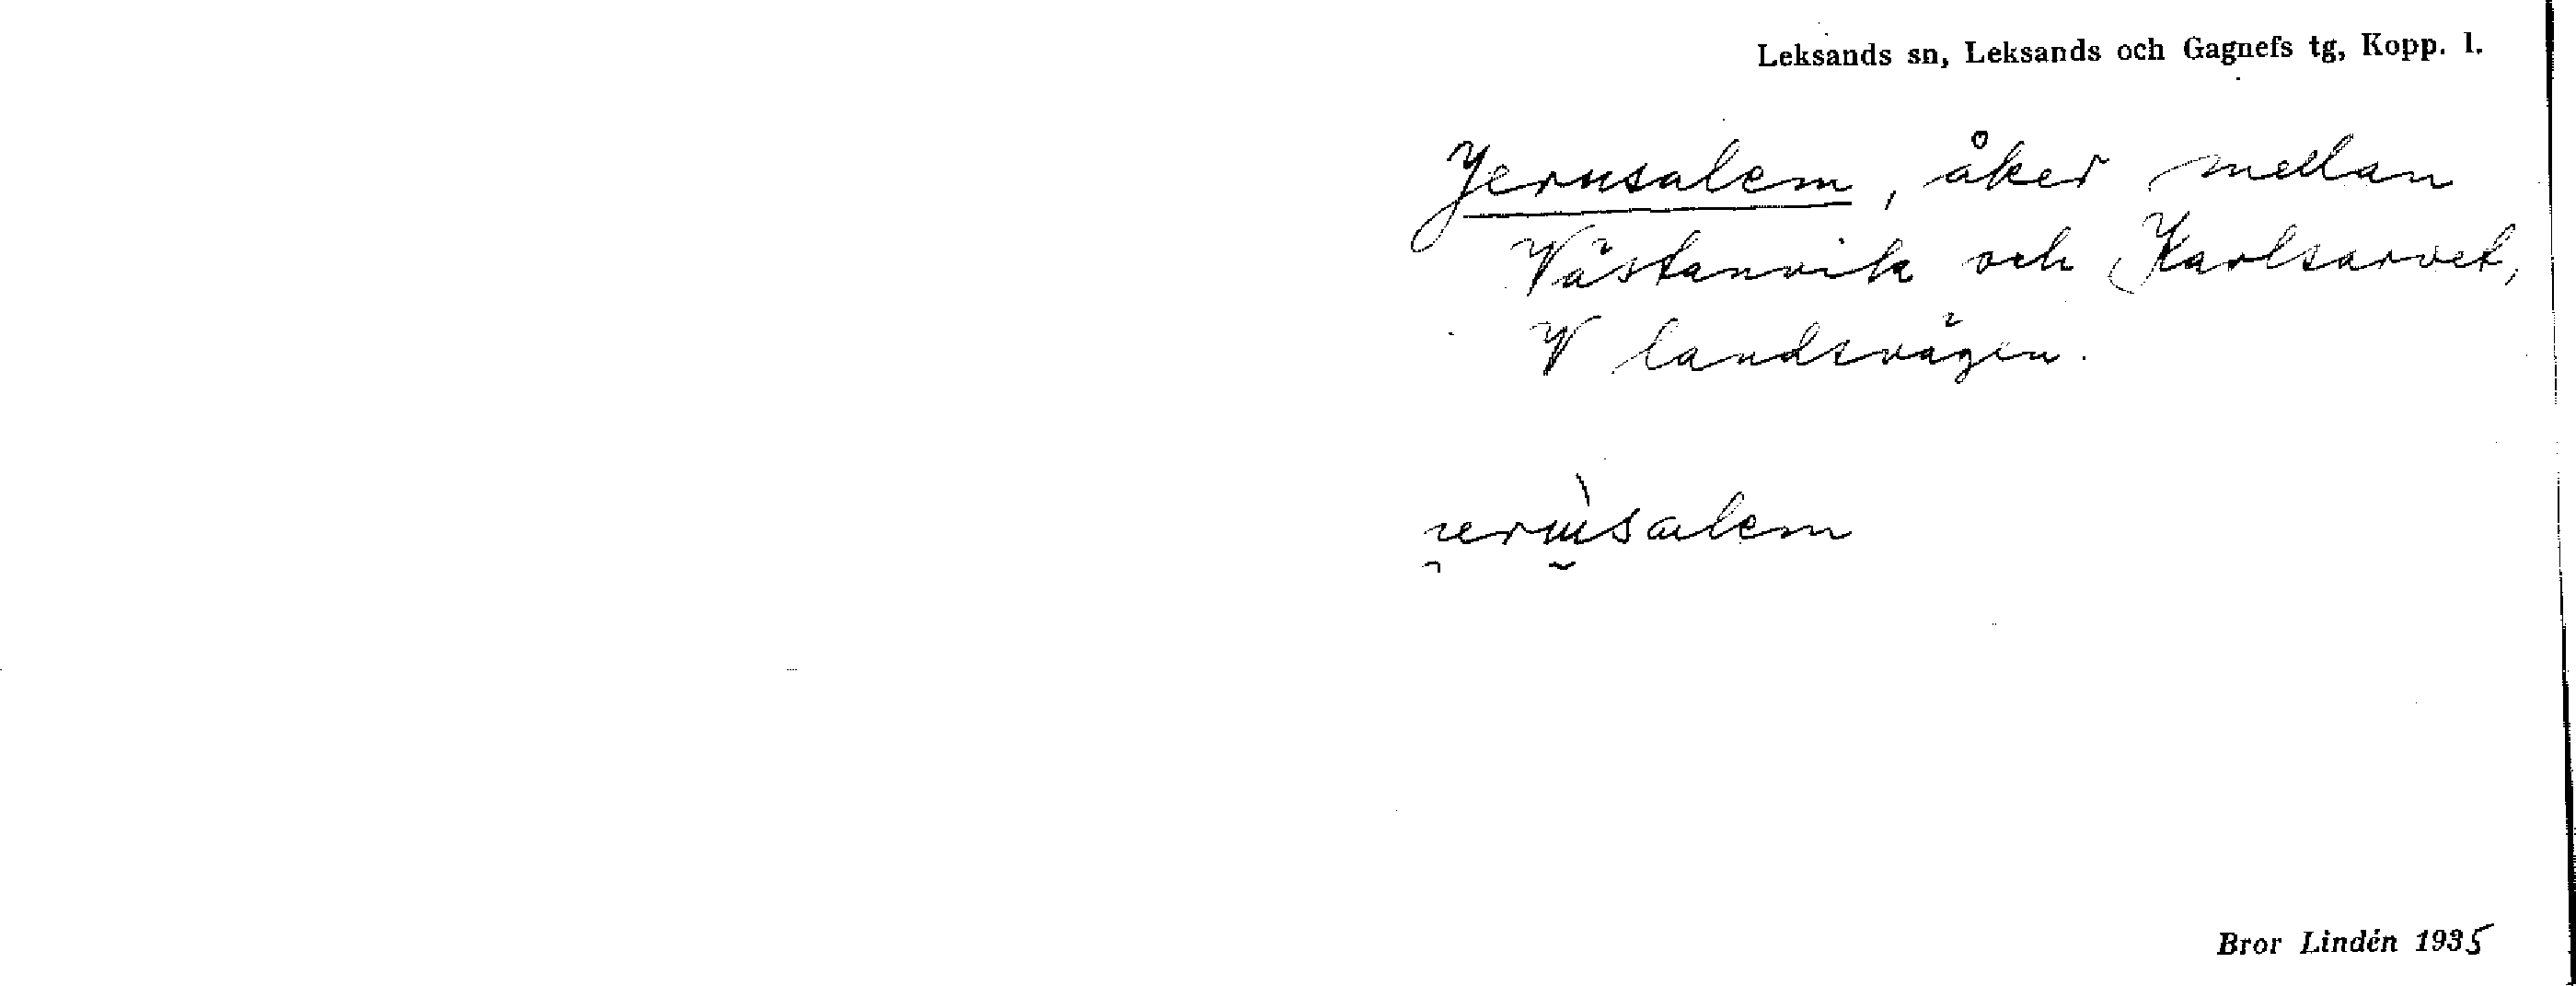 Leksands sn, Leksands och Gagnefs tg, Kopp. l.
Jerusalem, åker mellan
Västanvik och Karlsarvet,
V landsvägen.
ıerùsalem
Bror Lindén 1935